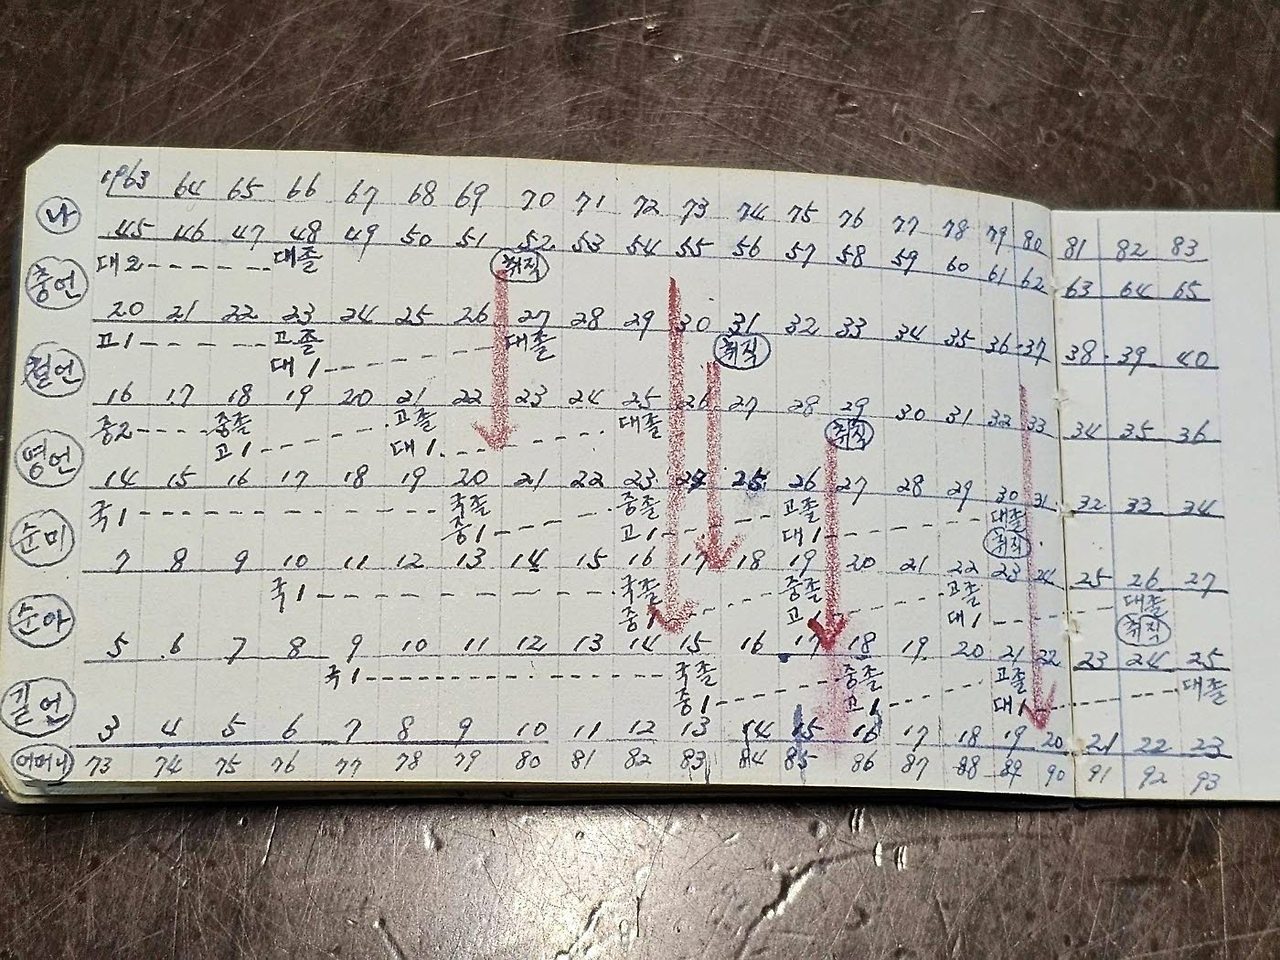 1963 64 65 66 67 68 69 70 71 72 73 74 75 76 77 78 79 80 81 82 83
나 45 46 47 48 49 50 51 52 53 54 55 56 57 58 59 60 61 62 63 64 65
대2 대졸 취직
충언 20 21 22 23 24 25 26 27 28 29 30 31 32 33 34 35 36 37 38 39 40
고1 고졸 대졸 취직
대1
철언 16 17 18 19 20 21 22 23 24 25 26 27 28 29 30 31 32 33 34 35 36
중2 중졸 고졸 대졸 취직
고1 대1
명언 14 15 16 17 18 19 20 21 22 23 24 25 26 27 28 29 30 31 32 33 34
국1 국졸 중졸 고졸 대졸
중1 고1 대1 취직
순미 7 8 9 10 11 12 13 14 15 16 17 18 19 20 21 22 23 24 25 26 27
국1 국졸 중졸 고졸 대졸
중1 고1 대1 취직
순아 5 6 7 8 9 10 11 12 13 14 15 16 17 18 19 20 21 22 23 24 25
국1 국졸 중졸 고졸 대졸
중1 고1 대1
길언 3 4 5 6 7 8 9 10 11 12 13 14 15 16 17 18 19 20 21 22 23
어머니 73 74 75 76 77 78 79 80 81 82 83 84 85 86 87 88 89 90 91 92 93